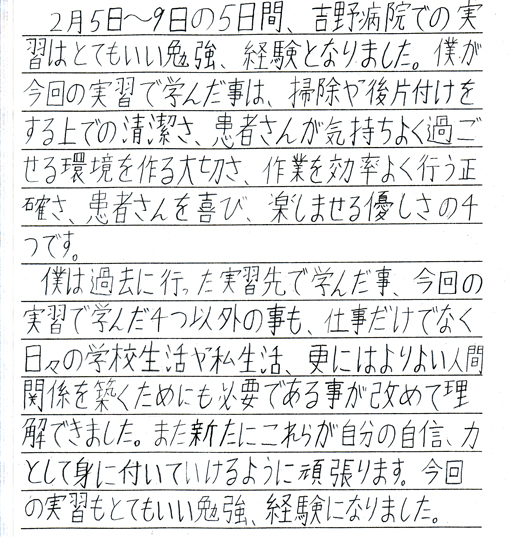 2月5日〜9日の5日間、吉野病院での実
習はとてもいい勉強、経験となりました。僕が
今回の実習で学んだ事は、掃除や後片付けを
する上での清潔さ、患者さんが気持ちよく過ご
せる環境を作る大切さ、作業を効率よく行う正
確さ、患者さんを喜び、楽しませる優しさの4
つです。
僕は過去に行った実習先で学んだ事、今回の
実習で学んだ4つ以外の事も、仕事だけでなく
日々の学校生活や私生活、更にはよりよい人間
関係を築くためにも必要である事が改めて理
解できました。また新たにこれらが自分の自信、力
として身に付いていけるように頑張ります。今回
の実習もとてもいい勉強、経験になりました。